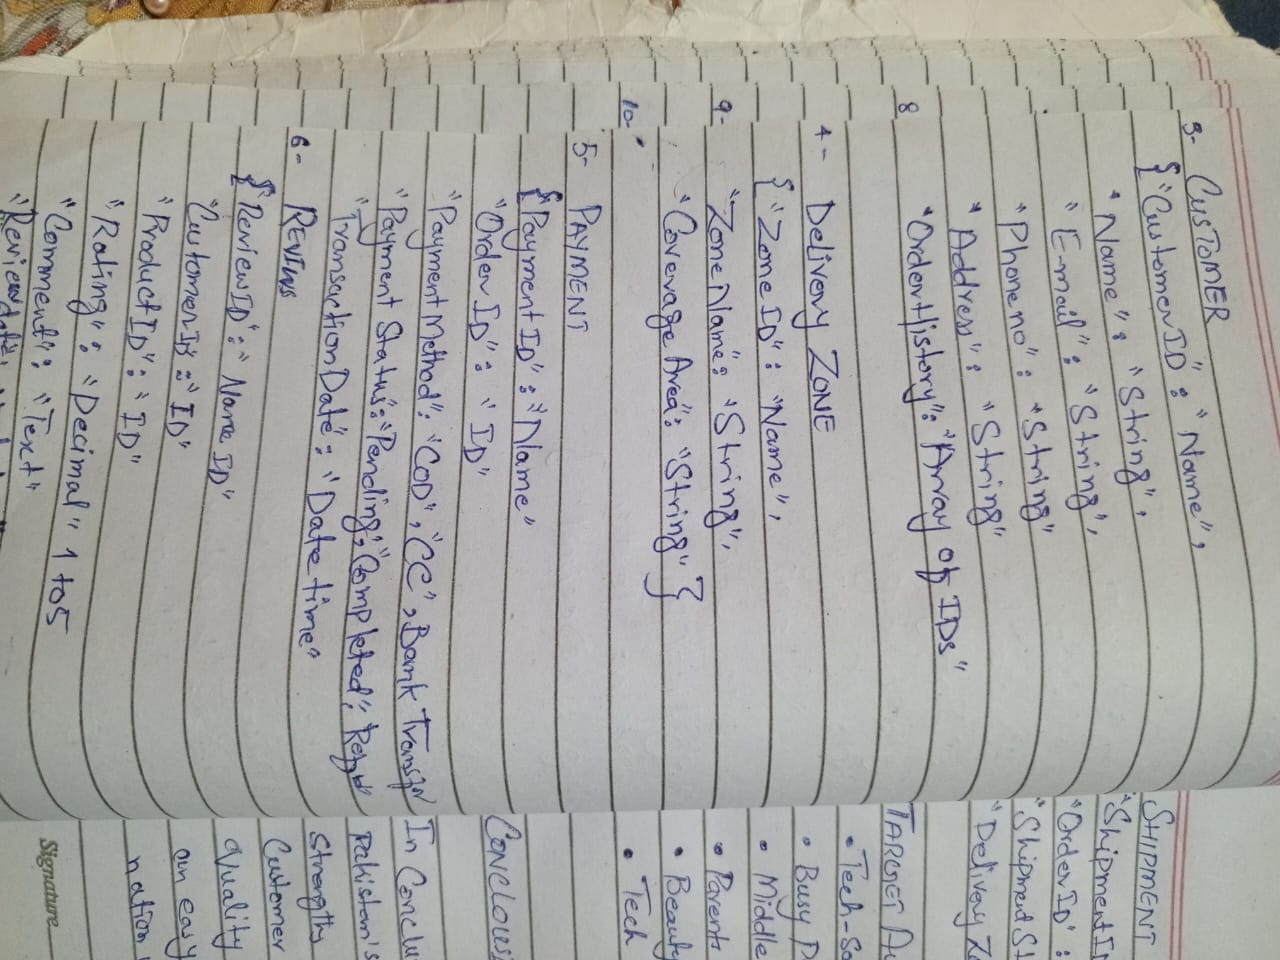 3- CUSTOMER
{"CustomerID" : "Name",
"Name" : "String",
"E-mail" : "String",
"Phone no" : "String"
"Address" : "String"
"OrderHistory" : "Array of IDs"
8
4- Delivery ZONE
{"Zone ID" : "Name",
9- "ZoneName" : "String",
"Coverage Area" : "String" }
10-
5- PAYMENT
{"Payment ID" : "Name"
"Order ID" : "ID"
"Payment Method" : "COD", "CC", Bank Transfer
"Payment Status" : "Pending", "Completed",
"Transaction Date" : "Date time"
6- REVIWS
{"ReviewID" : "Name ID"
"CustomerID" : "ID"
"ProductID" : "ID"
"Rating" : "Decimal" 1 to5
"Comment" : "Text"
"Reviewdate"
SHIPMENT
"Shipment
"Order ID" :
"Shipment
"Delivery
TARGET
• Tech-
• Busy
• Middle
• Parents
• Beauty
• Tech
In
Pakistan's
Strengths
Customer
Quality
an easy
nation
Signature